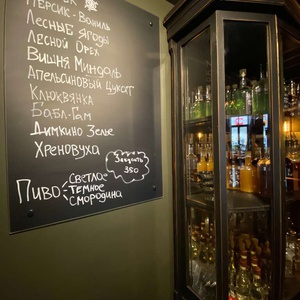 Персик-Ваниль
Лесные Ягоды
Лесной Орех
Вишня Миндаль
Апельсиновый Цукат
Клюквянка
Бабл-Гам
Димкино Зелье
Хреновуха
Закусить
350
Пиво
Светлое
Темное
Смородина